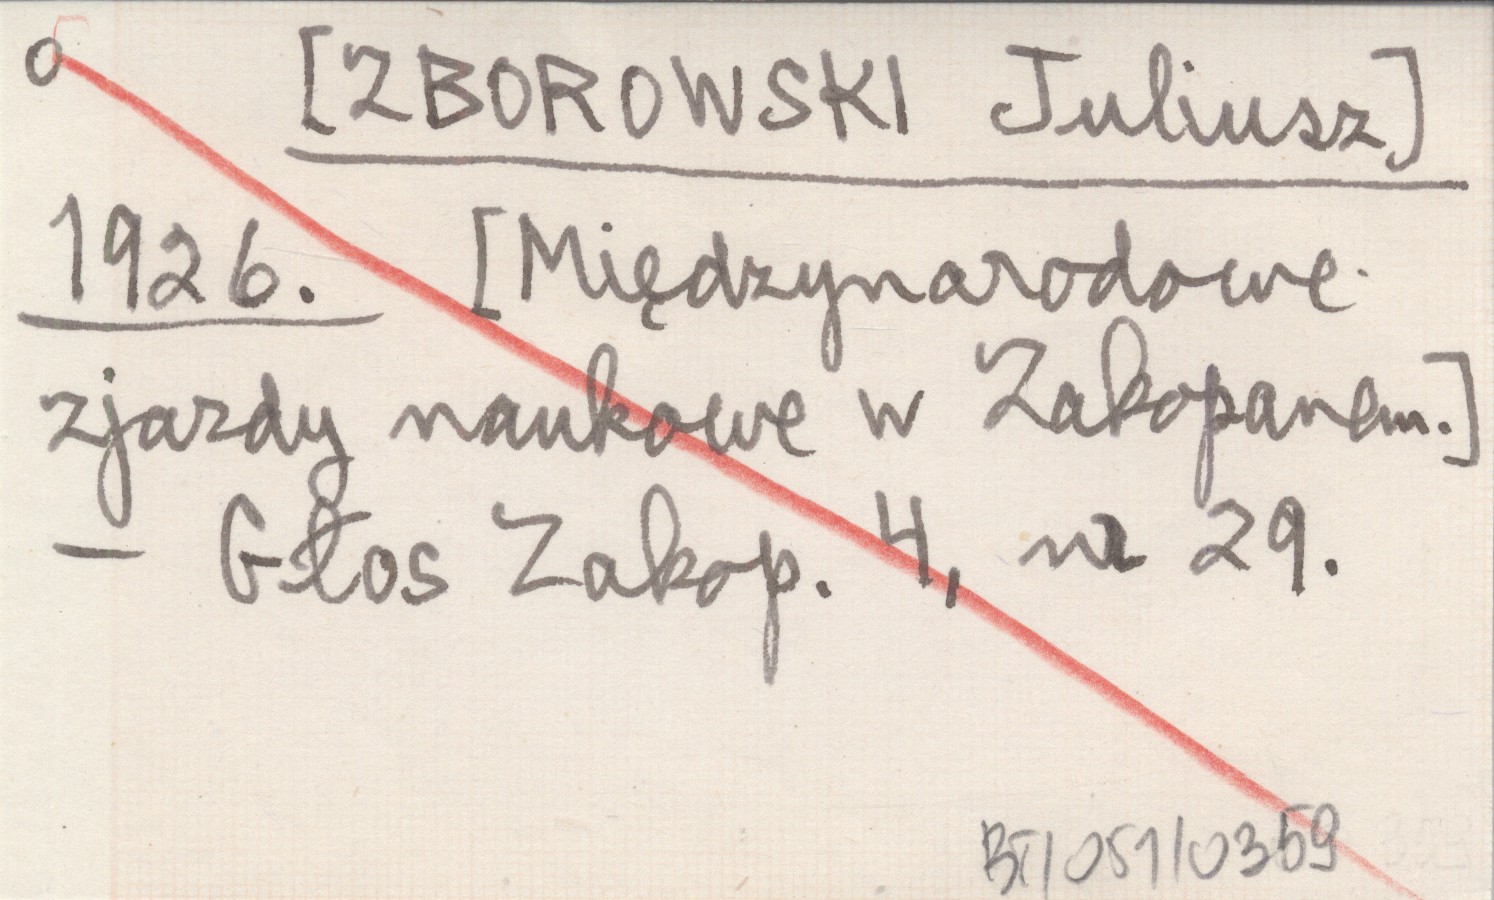 o [ZBOROWSKI Juliusz]
1926. [Międzynarodowe
zjazdy naukowe w Zakopanem.]
— Głos Zakop. 4, nr 29.
BT/051/0359